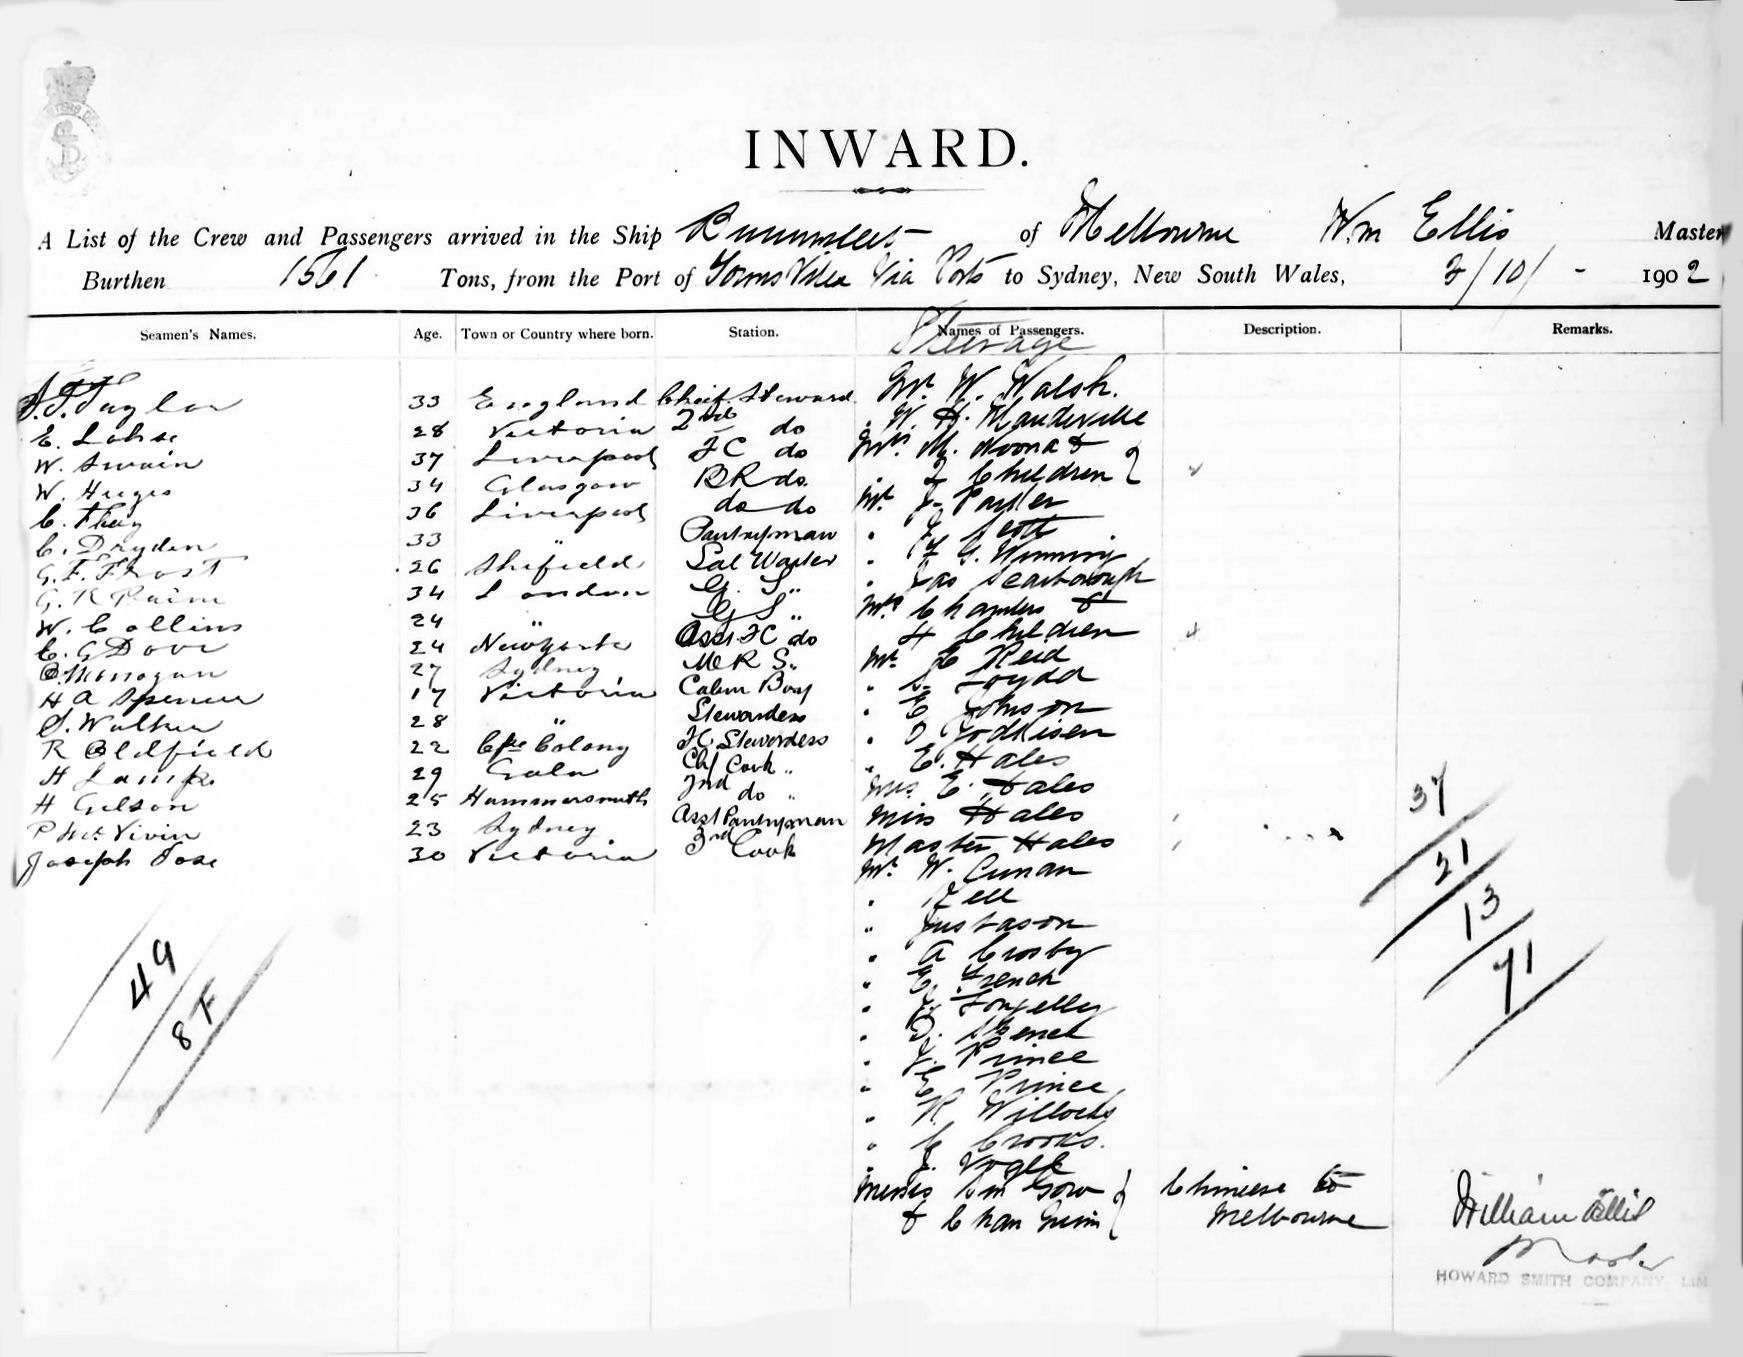 INWARD.
A List of the Crew and Passengers arrived in the Ship of Melbourne Wm Ellis Master
Burthen 1561 Tons, from the Port of Townsville Via Ports to Sydney, New South Wales, 2/10/- 1902
Seamen's Names. Age. Town or Country where born. Station. Names of Passengers. Description. Remarks.
Steerage
Mr. W. Walsh.
Taylor 33 England Chief Steward
" W. H. Mandeville
E. Lohse 28 Victoria 2nd do
Mrs. M. Noona &
W. Swain 37 Liverpool FC do
2 Children }
W. Huges 34 Glasgow BR do.
Mr. J. Parker
C. 36 Liverpool do do
" J. Scott
C. Dryden 33 " Pantryman
" G. Winning
G. F. Frost 26 Shefield Sal Waiter
" Jas Scarborough
G. R Paine 34 London G. S "
Mrs Chambers &
W. Collins 24 " G S "
4 Children
C. G Dove 24 Newyorke Asst FC do
Mr. Reid
27 Sydney M R S "
" S. Loydd
H A Spencer 17 Victoria Cabin Boy
" E Johnson
S. Walker 28 " Stewardess
" O
R Oldfield 22 Cpe Colony FC Stewerdess
" E. Hales
H Lamp. 29 Chf Cook "
Mrs. E. Hales
H Gilson 25 Hammersmith 2nd do "
Miss Hales
P 23 Sydney Asst Pantryman
Master Hales
Joseph 30 Victoria 3rd Cook
Mr. W. Cunan
" Kell
" Gustason
" A Crosby
" E. French
"
" D.
" J. Prince
" E Prince
" R Willocks
" C Crooks.
" J.
Messrs Sin Gow } Chinese to
& Chan } Melbourne
49
8 F
37
21
13
71
William Ellis
Master
HOWARD SMITH COMPANY, LIM